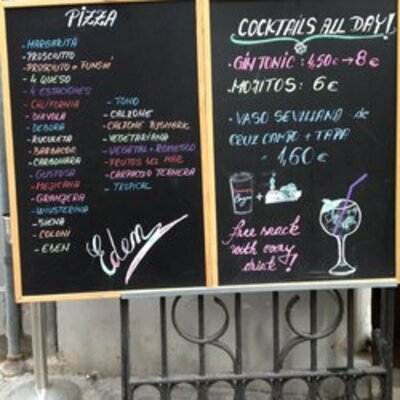 PIZZA
- MARGARITA
- PROSCIUTTO
- PROSCIUTTO e FUNGHI
- 4 QUESO
- 4 ESTACIONES
- CALIFORNIA
- DIAVOLA
- DEBORA
- RUCULETA
- BARBACOA
- CARBONARA
- GUSTOSA
- MEJICANA
- GRANJERA
- SIENA
- COLONI
- EDEN
- TONO
- CALZONE
- CALZONE BISMARK
- VEGETARIANA
- VEGETAL + ROMESCO
- FRUTOS DEL MAR
- CARPACCIO TERNERA
- TROPICAL
Eden
COCKTAILS ALL DAY!
- GIN TONIC : 4,50€ → 8€
- MOJITOS : 6€
- VASO SEVILLANO de
CRUZ CAMPO + TAPA
- 1,60€
+
free snack
with every
drink!